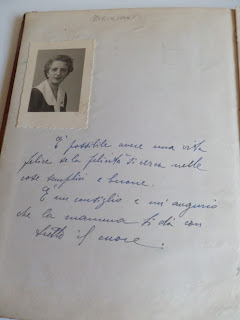 È possibile avere una vita
felice se la felicità si cerca nelle
cose semplici e buone.
È un consiglio e un augurio
che la mamma ti dà con
tutto il cuore.